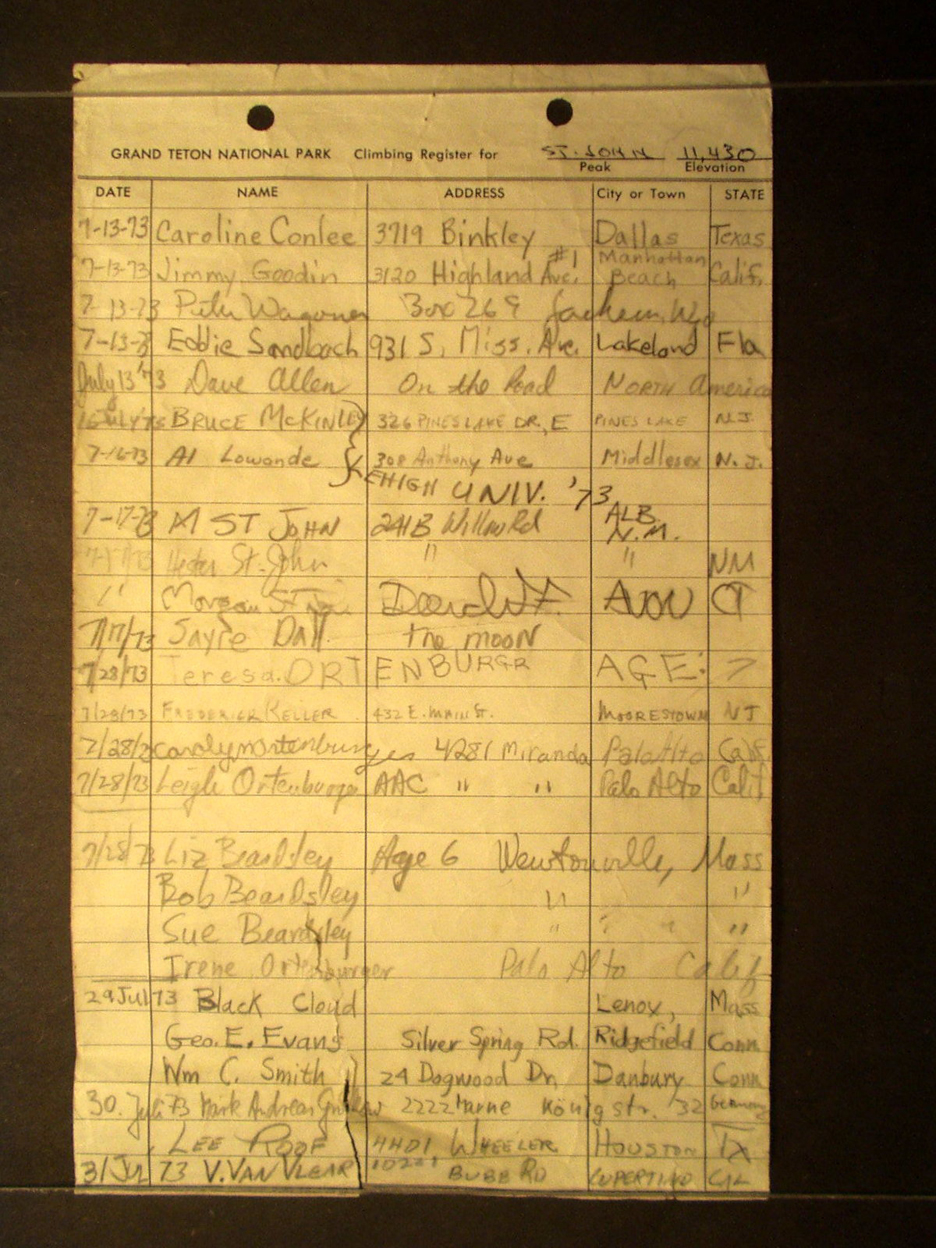 GRAND TETON NATIONAL PARK Climbing Register for ST. JOHN 11,430
Peak Elevation
DATE NAME ADDRESS City or Town STATE
7-13-73 Caroline Conlee 3719 Binkley Dallas Texas
7-13-73 Jimmy Goodin 3120 Highland Ave. #1 Manhattan Beach Calif.
7-13-73 Pete Box 269
7-13-73 Eddie Sandbach 931 S. Miss. Ave. Lakeland Fla
July 13 '73 Dave Allen On the Road NORTH America
BRUCE McKINLEY 326 PINES LAKE DR, E PINES LAKE N.J.
7-16-73 Al Lowande 308 Anthony Ave Middlesex N.J.
LEHIGH UNIV. '73
7-17-73 M ST JOHN 241B Willow Rd ALB. N.M.
7-17-73 St. John " " NM
" Morgan St AVON CT
7/17/73 Sayre Dall the moon
7/28/73 Teresa ORTENBURGR AGE: 7
7/28/73 FREDERICK KELLER 432 E. MAIN ST. MOORESTOWN NJ
7/28/73 carolynortenburger yes 4281 Miranda Palo Alto Calif
7/28/73 Leigh Ortenburger AAC " " Palo Alto Calif
7/28/73 Liz Beardsley Age 6 Newtonville, Mass
Bob Beardsley " "
Sue Beardsley " " " "
Irene Ortenburger Palo Alto Calif
29 Jul 73 Black Cloud Lenox, Mass
Geo. E. Evans Silver Spring Rd. Ridgefield Conn
Wm C. Smith 24 Dogwood Dr. Danbury Conn
30. Juli 73 Mark Andreas 2222 Marne Königstr. 32 Germany
LEE ROOF 4401 WHEELER HOUSTON TX
31 Jul 73 V. VAN VLEAR BUBB RD CUPERTINO CAL